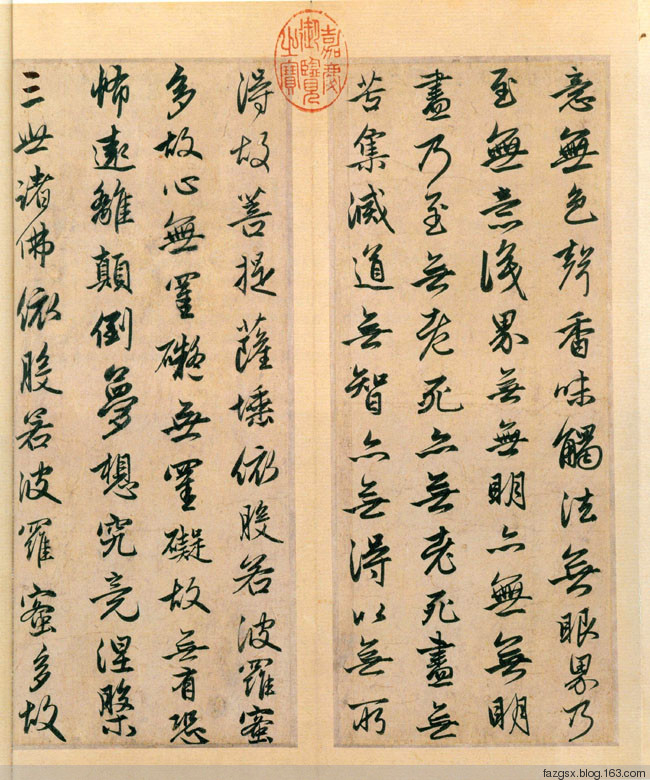 嘉慶御覽之寶
意無色聲香味觸法無眼界乃
至無意識界無無明亦無無明
盡乃至無老死亦無老死盡無
苦集滅道無智亦無得以無所
得故菩提薩埵依般若波羅蜜
多故心無罣礙無罣礙故無有恐
怖遠離顛倒夢想究竟涅槃
三世諸佛依般若波羅蜜多故
fazgsx.blog.163.com